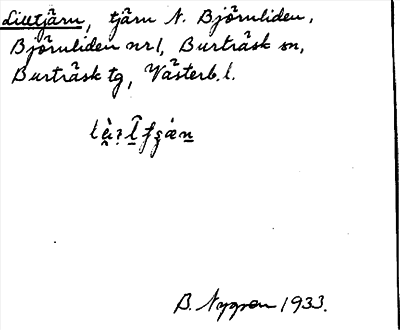 Liltjärn, tjärn N. Björnliden,
Björnliden nr 1, Burträsk sn,
Burträsk tg, Västerb. l.
B. Nygren 1933.